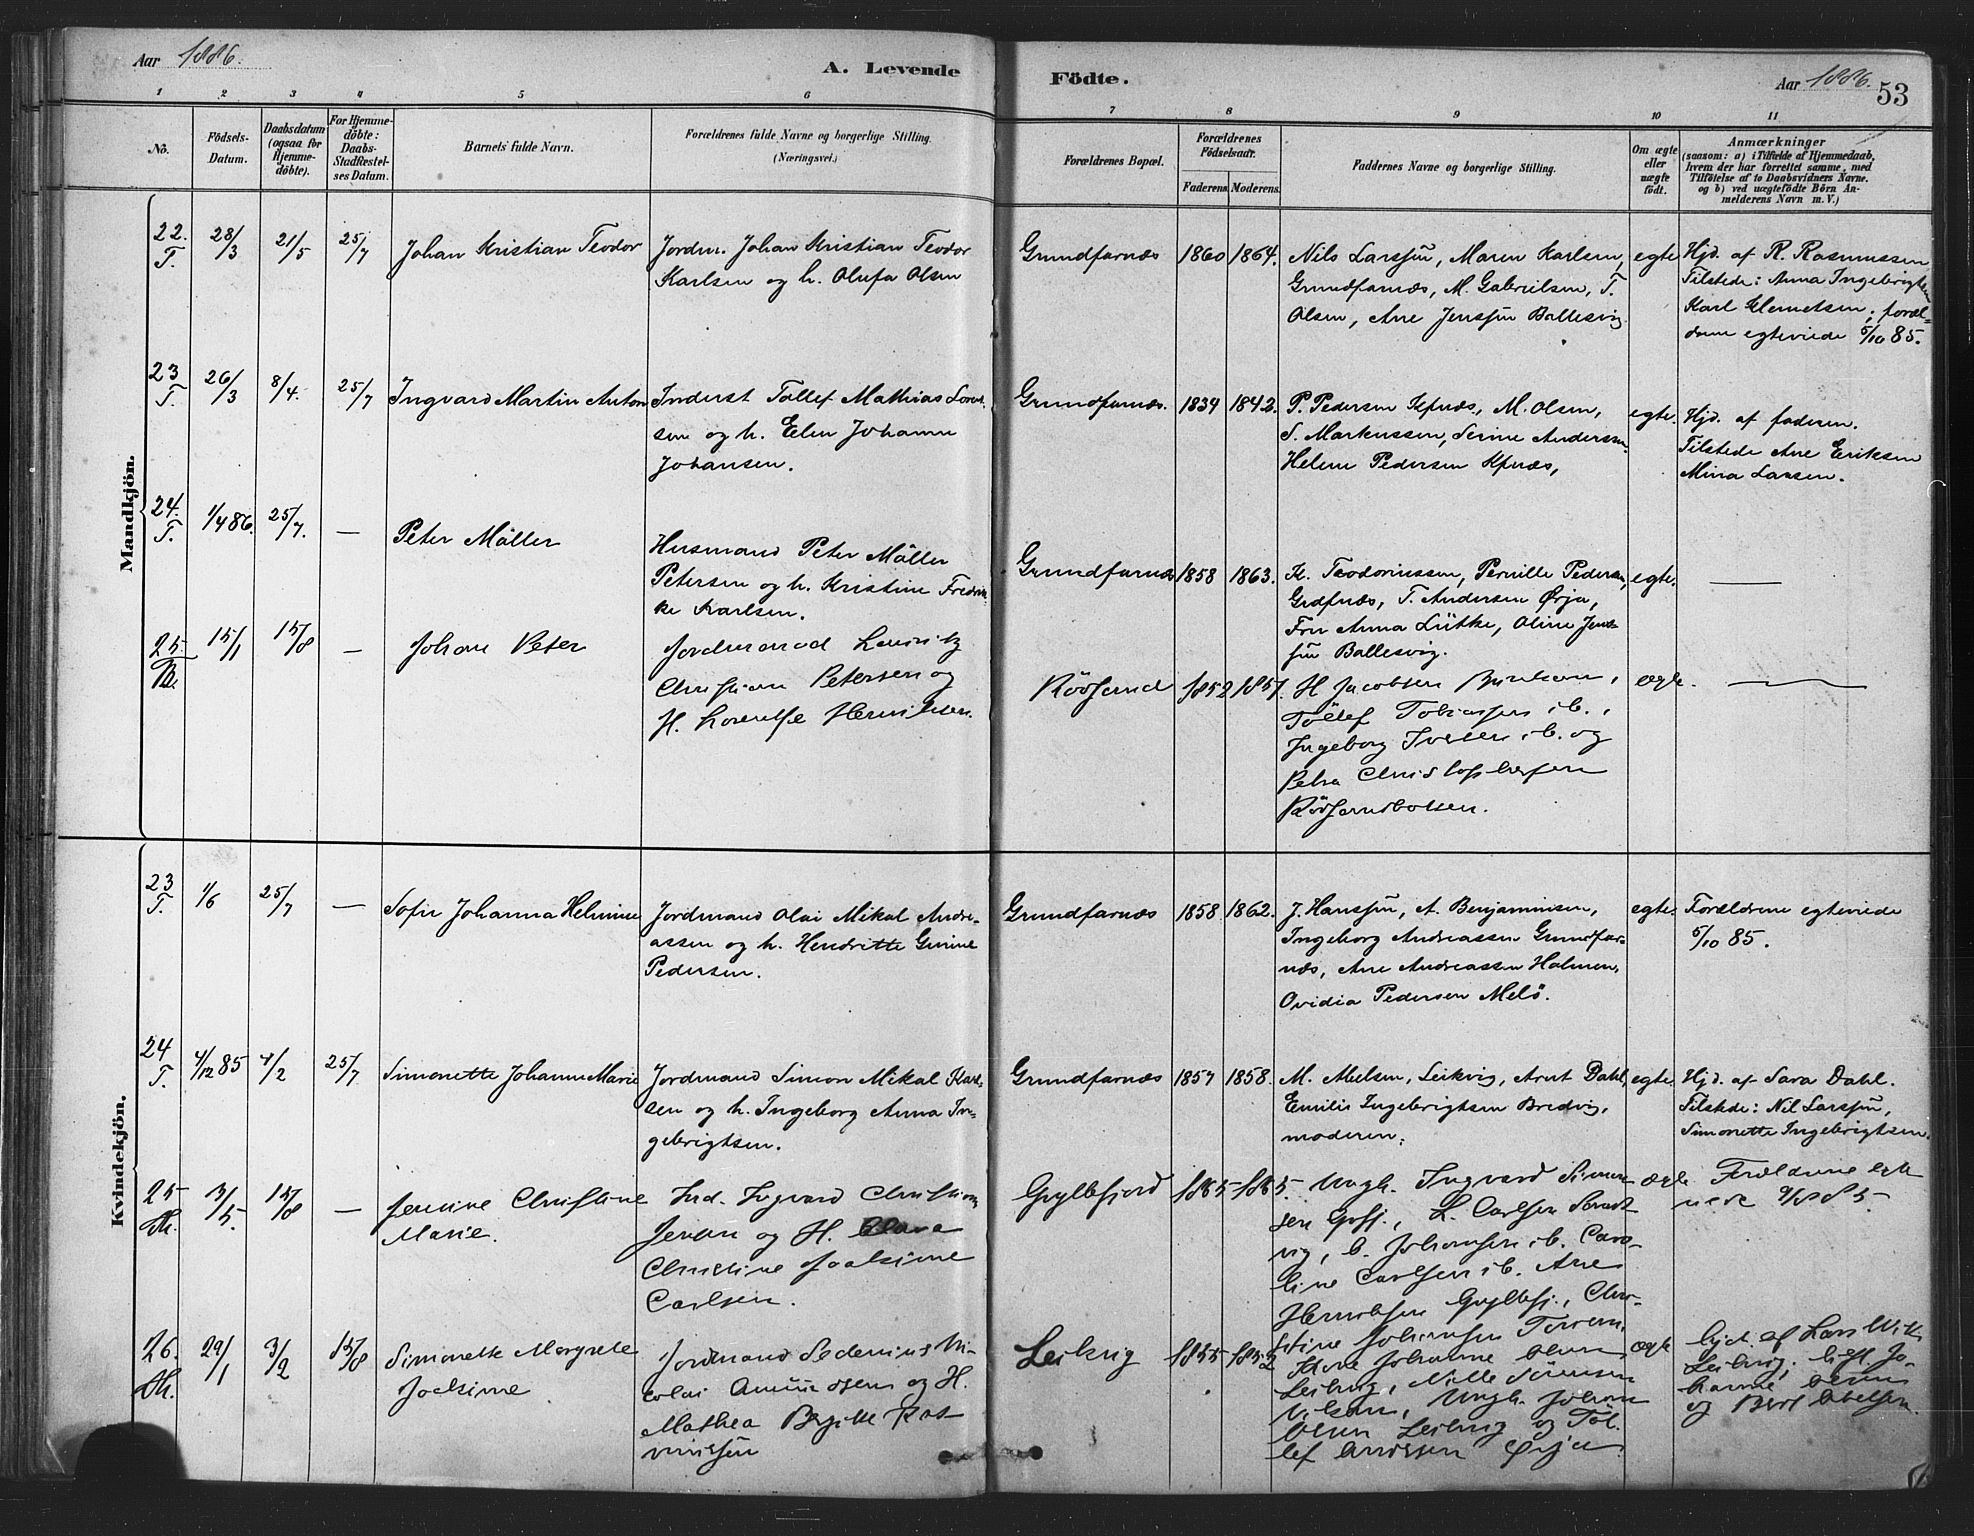 Aar 1886.
A. Levende
Födte.
Aar 1886.
53
1 2 3 4 5 6 7 8 9 10 11
No.
Födsels-
Datum.
Daabsdatum
(ogsaa for
Hjemme-
döbte).
For Hjemme-
döbte:
Daabs-
Stadfæstel-
ses Datum.
Barnets fulde Navn.
Forældrenes fulde Navne og borgerlige Stilling.
(Næringsvei.)
Forældrenes Bopæl.
Forældrenes
Födselsaar.
Faderens. Moderens.
Faddernes Navne og borgerlige Stilling.
Om ægte
eller
uægte
födt.
Anmærkninger
(saasom: a) i Tilfælde af Hjemmedaab,
hvem der har forrettet samme, med
Tilföielse af to Daabsvidners Navne.
og b) ved uægtefödte Börn An-
melderens Navn m. V.)
Mandkjön.
22.
T.
28/3
21/5
25/7
Johan Kristian Teodor
Jordm. Johan Kristian Teodor
Karlsen og h. Olufa Olsen
Grundfarnæs
1860
1864.
Nils Larssen, Maren Karlsen,
Grundfarnæs, M. Gabrielsen, T.
Olsen, Ane Jenssen Ballesvig
egte
Hjd. af R. Rasmussen
Tilstede: Anna Ingebrigtsen
Karl Klemetsen; foræl-
drene egteviede 5/10 85.
23
T.
26/3
8/4.
25/7
Ingvard Martin Anton
Inderst Tollef Mathias Loren-
sen og h. Elen Johanne
Johansen.
Grundfarnæs.
1834
1842.
P. Pedersen Kfnæs, M. Olsen,
S. Markussen, Serine Andersen
Helene Pedersen Kfnæs,
egte.
Hjd. af faderen.
Tilstede Ane Eriksen
Mina Larsen.
24.
T.
1/4 86.
25/7.
—
Peter Möller
Husmand Peter Möller
Petersen og h. Kristine Fredrik-
ke Karlsen.
Grundfarnæs
1858
1863.
K. Teodoriussen, Pernille Pedersen,
Grdfnæs, T. Andersen Ørja,
Fru Anna Lütke, Oline Jens-
sen Ballesvig.
egte.
—
25.
15/1
15/8
—
Johan Peter
Jordmand Lauritz
Christian Petersen og
H. Lorentse Henriksen.
Rödsand
1852
1857.
H Jacobsen
Tollef Tobiassen ib.,
Ingeborg Iversen ib. og
Petra Christophersen
Rödsandbotten.
ægte.
—
Kvindekjön.
23
T.
1/6
25/7
—
Sofie Johanna Helmine
Jordmand Olai Mikal Andre-
assen og h. Hendritte Gurine
Pedersen.
Grundfarnæs
1858.
1862.
J. Hanssen, A. Benjaminsen,
Ingeborg Andreassen Grundfar-
næs, Ane Andreassen Holmen,
Ovidia Pedersen Melö.
egte.
Forældrene egteviede
5/10 85.
24
T.
4/12 85
4/2
25/7
Simonette Johanne Marie
Jordmand Simon Mikal Karl-
sen og h. Ingeborg Anna In-
gebrigtsen.
Grundfarnæs
1857
1858.
M. Nielsen, Leikvig, Arnt Dahl,
Emilie Ingebrigtsen Bredvig,
moderen.
egte.
Hjd. af Sara Dahl.
Tilstede: Nil Larssen,
Simonette Ingebrigtsen.
25
Th.
3/5.
15/8
—
Jensine Christine
Marie.
Ind. Ingvard Christian
Jensen og H. Clara
Christine Joakime
Carlsen.
Gryllefjord
1865
1865.
Ungk. Ingvard Simon-
sen Grfj., L. Carlsen
C. Johansen ib. Caro-
line Carlsen ib. Ane
Henriksen Gryllefj., Chri-
stine Johansen
ægte
Forældrene egte
26.
Th.
29/1
3/2
15/8
Simonette Margrete
Joakime
Jordmand Sedenius Ni-
colai Amundsen og H.
Mathea Birgitte Ras-
mussen
Leikvig
1855
1852
Johanne Olsen,
Leikvig, Nille Sörensen
Ungk. Johan
Olsen Leikvig og Tol-
lef Andersen Ørja
ægte
hjd. af Lars
Leikvig, Jo-
hanne Olsen
og Berit